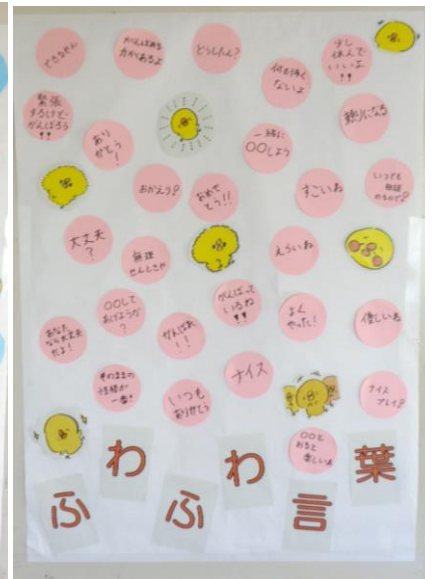 できるやん
がんばる
力があるよ
どうしたん?
何も怖く
ないよ
少し
休んで
いいよ
!!
緊張
するけど
がんばろう
!!
あり
がとう
!
一緒に
〇〇しよう
頼りになる
おかえり?
おめで
とう!!
すごいね
いつでも
相談
のるので?
大丈夫
?
無理
せんときや
えらいね
〇〇して
あげようか
?
がんばって
いるね
!!
よく
やった!
優しいね
あなた
なら大丈夫
だよ!
がんばれ
!!
そのままの
性格が
一番!
いつも
ありがとう
ナイス
ナイス
プレイ?
〇〇と
おると
楽しいね
ふわふわ言葉